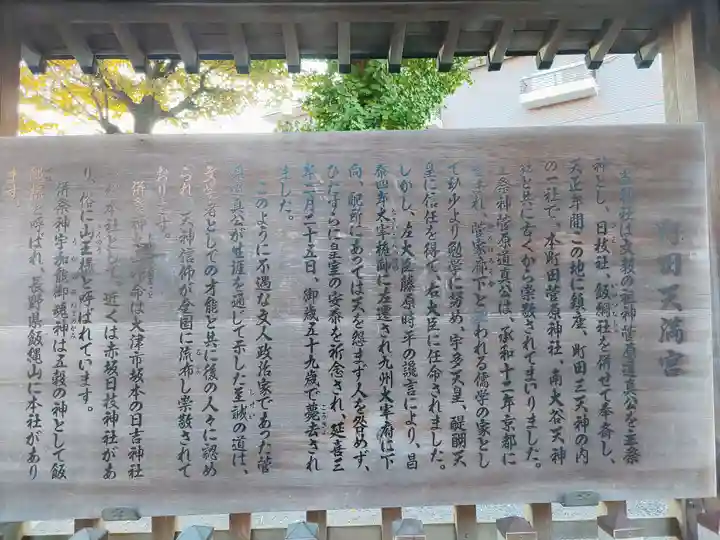 町田天満宮
当神社は文教の祖神菅原道真公を主祭
神とし、日枝社、飯綱社を併せて奉斎し、
天正年間この地に鎮座、町田三天神の内
の一社で、本町田菅原神社、南大谷天神
社と共に古くから崇敬されてまいりました。
主祭神菅原道真公は、承和十二年京都に
生まれ、菅家廊下と云われる儒学の家とし
て幼少より勉学に努め、宇多天皇、醍醐天
皇に信任を得て、右大臣に任命されました。
しかし、左大臣藤原時平の讒言により、昌
泰四年大宰権師に左遷され九州大宰府に下
向、配所にあっては天を怨まず人を咎めず、
ひたすらに皇室の安泰を祈念され、延喜三
年二月二十五日、御歳五十九歳で薨去され
ました。
このように不遇な文人政治家であった菅
原道真公が生涯を通じて示した至誠の道は、
文学者としての才能と共に後の人々に認め
られ、天神信仰が全国に流布し崇敬されて
おります。
併祭神 命は大津市坂本の日吉神社
を本社として、近くは赤坂日枝神社があ
り、俗に山王様と呼ばれています。
併祭神宇加能御魂神は五穀の神として飯
綱様と呼ばれ、長野県飯縄山に本社があり
ます。